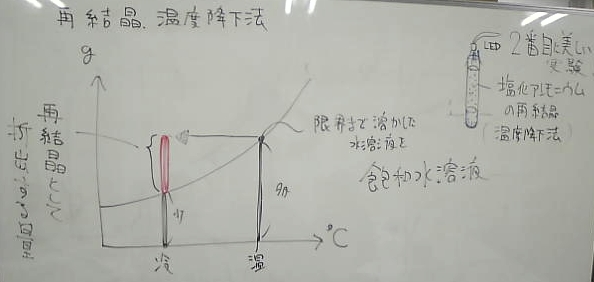 再結晶、温度降下法
g
再結晶として
限界まで溶かした
水溶液を
飽和水溶液
℃
冷
温
LED
2番目に美しい
実験
塩化アンモニウム
の再結晶
(温度降下法)